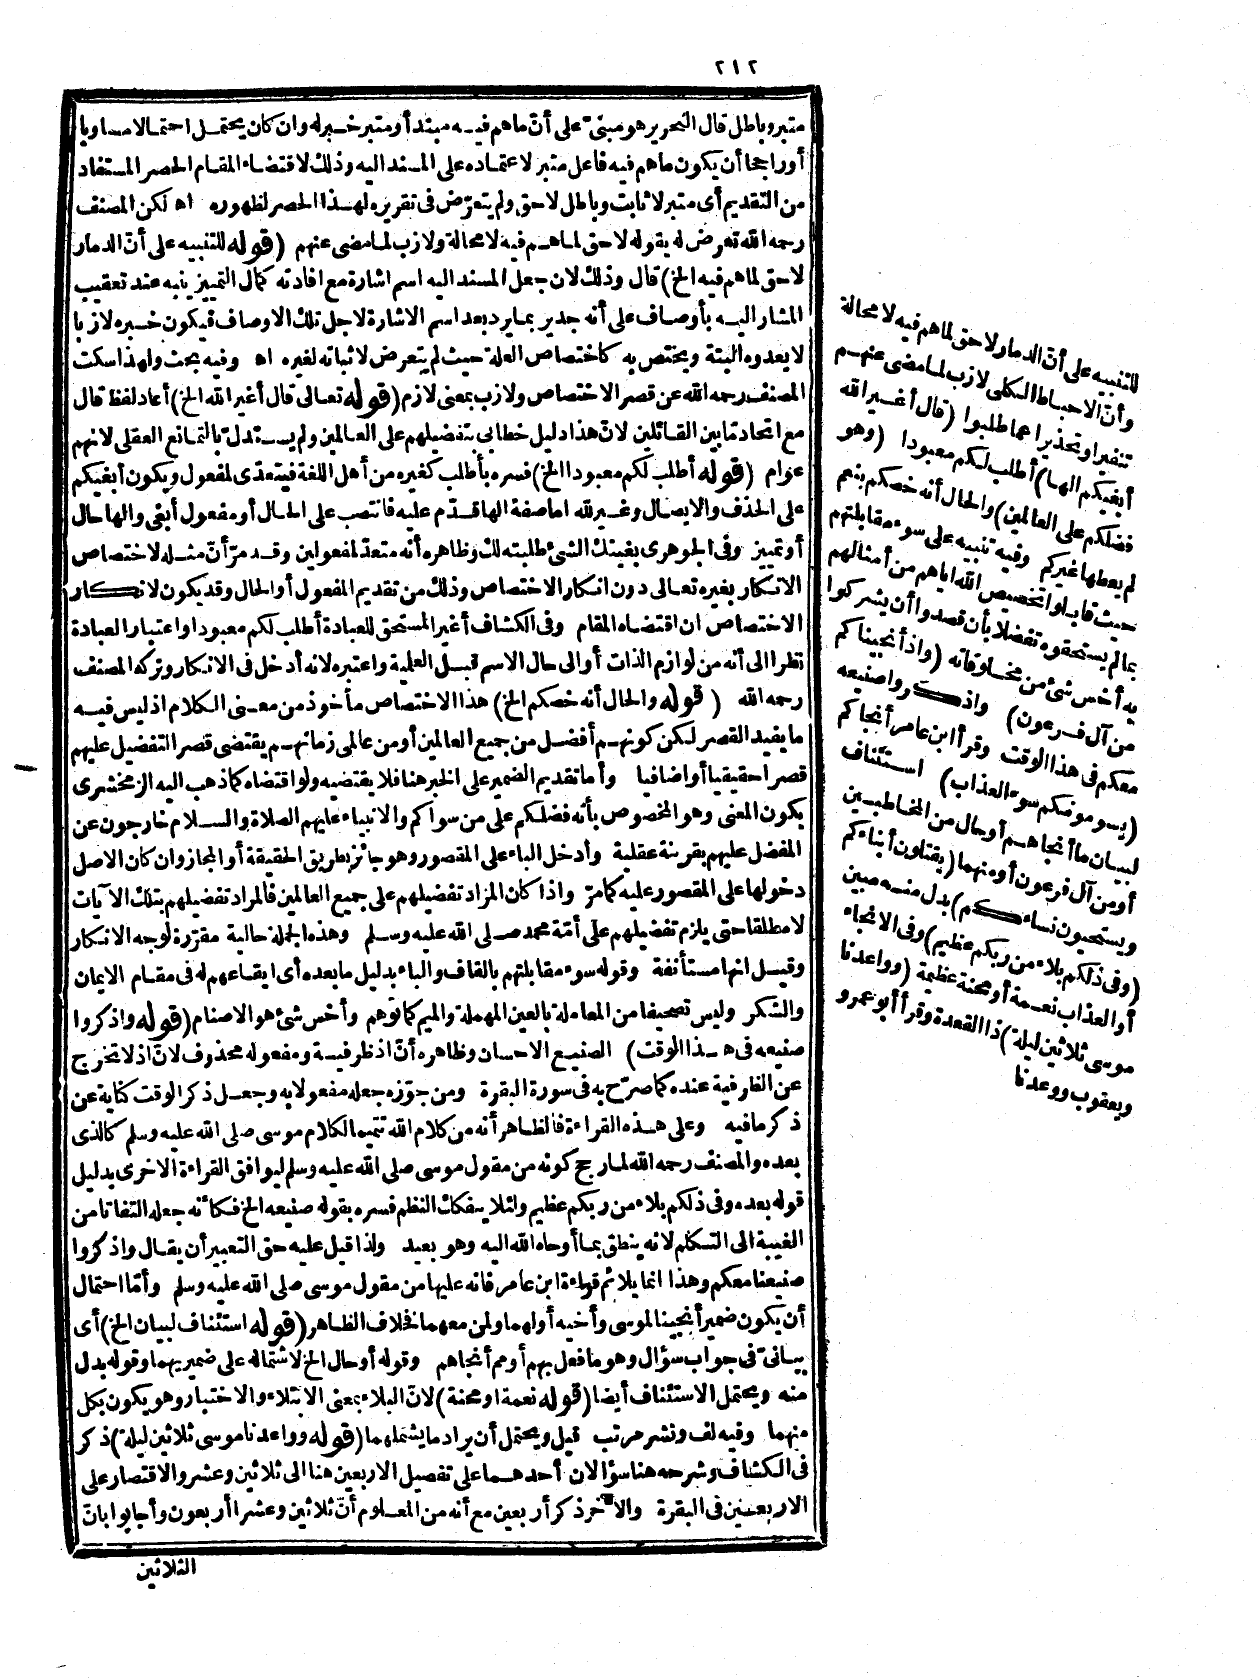 ٢١٢
متبر وباطل قال النحرير هو مبنى على أنّ ما هم فيه مبتدأ ومتبر خبر له وان كان يحتمل احتمالا مساويا
أو راجحا أن يكون ما هم فيه فاعل متبر لاعتماده على المسند اليه وذلك لاقتضاء المقام الحصر المستفاد
من التقديم أى متبر لا ثابت وباطل لا حق ولم يتعرّض فى تقريره لهذا الحصر لظهوره اه لكن المصنف
رحمه الله تعرض له بقوله لاحق لما هم فيه لا محالة ولازب لما مضى عنهم (قوله للتنبيه على أنّ الدمار
لاحق لما هم فيه الخ) قال وذلك لان جعل المسند اليه اسم اشارة مع افادته كمال التمييز ينبه عند تعقيب
المشار اليه بأوصاف على أنه جدير بما يرد بعد اسم الاشارة لاجل تلك الاوصاف فيكون خبره لازبا
لا يعدوه البتة ويختص به كاختصاص العلة حيث لم يتعرض لاثباته لغيره اه وفيه بحث ولهذا سكت
المصنف رحمه الله عن قصر الاختصاص ولازب بمعنى لازم (قوله تعالى قال أغير الله الخ) أعاد لفظ قال
مع اتحاد ما بين القائلين لانّ هذا دليل خطابى بتفضيلهم على العالمين ولم يستدلّ بالتمانع العقلى لانهم
عوام (قوله أطلب لكم معبودا الخ) فسره بأطلب كغيره من أهل اللغة فيتعدّى لمفعول ويكون أبغيكم
على الحذف والايصال وغير لله اما صفة الها قدّم عليه فانتصب على الحال أو مفعول أبغى والها حال
أو تمييز وفى الجوهرى بغيتك الشئ طلبته لك وظاهره أنه متعدّ لمفعولين وقد مرّ أنّ مثله لاختصاص
الانكار بغيره تعالى دون انكار الاختصاص وذلك من تقديم المفعول أو الحال وقد يكون لانكار
الاختصاص ان اقتضاه المقام وفى الكشاف أغير المستحق للعبادة أطلب لكم معبودا واعتبار العبادة
نظرا الى أنه من لوازم الذات أو الى حال الاسم قبل العلمية واعتبره لانه أدخل فى الانكار وتركه المصنف
رحمه الله (قوله والحال أنه خصكم الخ) هذا الاختصاص مأخوذ من معنى الكلام اذ ليس فيه
ما يفيد القصر لكن كونهم أفضل من جميع العالمين أو من عالمى زمانهم يقتضى قصر التفضيل عليهم
قصرا حقيقيا أو اضافيا وأما تقديم الضمير على الخبر هنا فلا يقتضيه ولو اقتضاه كما ذهب اليه الزمخشرى
يكون المعنى وهو المخصوص بأنه فضلكم على من سواكم والانبياء عليهم الصلاة والسلام خارجون عن
المفضل عليهم بقرينة عقلية وأدخل الباء على المقصور وهو جائز بطريق الحقيقة أو المجاز وان كان الاصل
دخولها على المقصور عليه كما مرّ واذا كان المراد تفضيلهم على جميع العالمين فالمراد تفضيلهم بتلك الآيات
لا مطلقا حتى يلزم تفضيلهم على أمّة محمد صلى الله عليه وسلم وهذه الجملة حالية مقرّرة لوجه الانكار
وقيل انها مستأنفة وقوله سوء مقابلتهم بالقاف والباء بدليل ما بعده أى ايقاعهم له فى مقام الايمان
والشكر وليس تصحيفا من المعاملة بالعين المهملة والميم كما توهم وأخس شئ هو الاصنام (قوله واذكروا
صنيعه فى هذا الوقت) الصنيع الاحسان وظاهره أنّ اذ ظرفية ومفعوله محذوف لانّ اذ لا تخرج
عن الظرفية عنده كما صرّح به فى سورة البقرة ومن جوّزه جعله مفعولا به وجعل ذكر الوقت كناية عن
ذكر ما فيه وعلى هذه القراءة فالظاهر أنه من كلام الله تتميما لكلام موسى صلى الله عليه وسلم كالذى
بعده والمصنف رحمه الله لما رجح كونه من مقول موسى صلى الله عليه وسلم ليوافق القراءة الاخرى بدليل
قوله بعده وفى ذلكم بلاء من ربكم عظيم ولئلا ينفكك النظم فسره بقوله صنيعه الخ فكأنه جعله التفاتا من
الغيبة الى التكلم لانه ينطق بما أوحاه الله اليه وهو بعيد ولذا قيل عليه حق التعبير أن يقال واذكروا
صنيعنا معكم وهذا انما يلائم قراءة ابن عامر فانه عليها من مقول موسى صلى الله عليه وسلم وأمّا احتمال
أن يكون ضمير أنجينا لموسى وأخيه أولهما ولمن معهما فخلاف الظاهر (قوله استئناف لبيان الخ) أى
بيانىّ فى جواب سؤال وهو ما فعل بهم أو مم أنجاهم وقوله أو حال الخ لاشتماله على ضميريهما وقوله بدل
منه ويحتمل الاستئناف أيضا (قوله نعمة او محنة) لانّ البلاء بمعنى الابتلاء والاختبار وهو يكون بكل
منهما وفيه لف ونشر مرتب قيل ويحتمل أن يراد ما يشملهما (قوله وواعدنا موسى ثلاثين ليلة) ذكر
فى الكشاف وشرحه هنا سؤالان أحدهما على تفصيل الاربعين هنا الى ثلاثين وعشر والاقتصار على
الاربعين فى البقرة والآخر ذكر أربعين مع أنه من المعلوم أنّ ثلاثين وعشرا أربعون وأجابوا بانّ
الثلاثين
للتنبيه على أنّ الدمار لاحق لما هم فيه لا محالة
وأنّ الاحباط الكلى لازب لما مضى عنهم
تنفيرا وتحذيرا عما طلبوا (قال أغير الله
أبغيكم الها) أطلب لكم معبودا (وهو
فضلكم على العالمين) والحال أنه خصكم بنعم
لم يعطها غيركم وفيه تنبيه على سوء مقابلتهم
حيث قابلوا تخصيص الله اياهم من أمثالهم
بما لم يستحقوه تفضلا بأن قصدوا أن يشركوا
به أخس شئ من مخلوقاته (واذ أنجيناكم
من آل فرعون) واذكروا صنيعه
معكم فى هذا الوقت وقرأ ابن عامر أنجاكم
(يسومونكم سوء العذاب) استئناف
لبيان ما أنجاهم أو حال من المخاطبين
أو من آل فرعون أو منهما (يقتلون أبناءكم
ويستحيون نساءكم) بدل منه مبين
(وفى ذلكم بلاء من ربكم عظيم) وفى الانجاء
أو العذاب نعمة أو محنة عظيمة (وواعدنا
موسى ثلاثين ليلة) ذا القعدة وقرأ أبو عمرو
ويعقوب ووعدنا